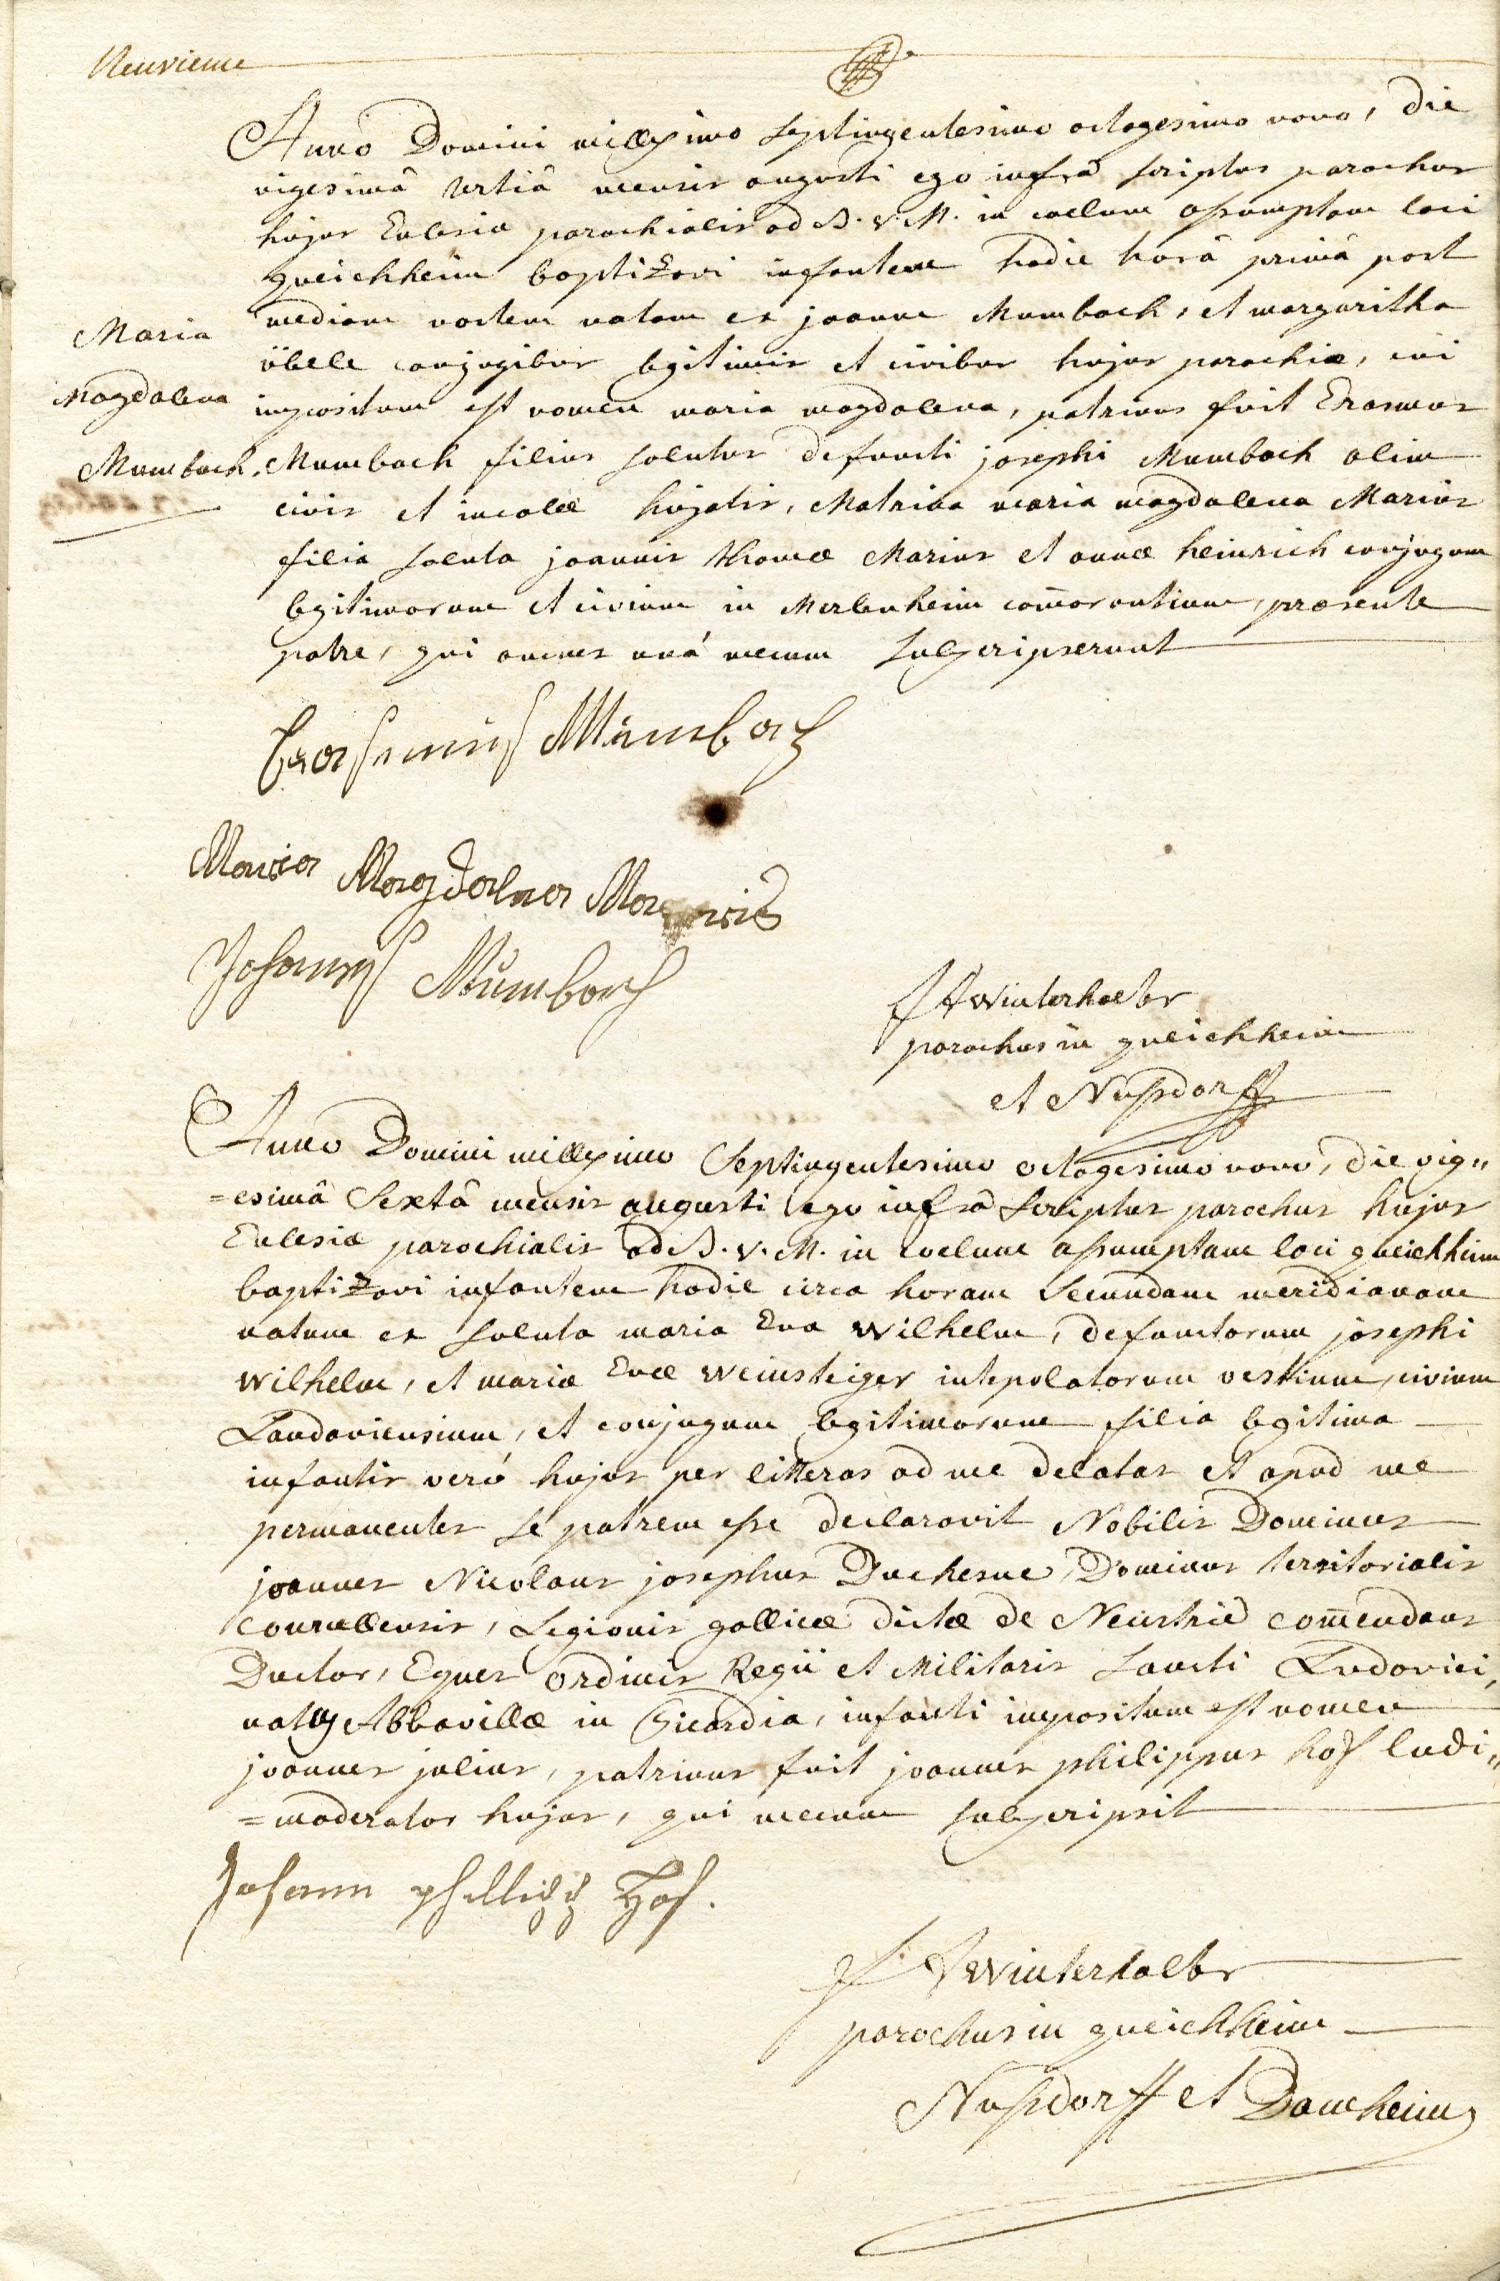 Neuvieme
Anno Domini millesimo septingentesimo octogesimo nono, die
vigesimâ tertiâ mensis augusti ego infrâ scriptus parochus
hujus Eclesiæ parochialis ad B. V. M. in coelum assumptam loci
queichheim baptizavi infantem hodie horâ primâ post
mediam noctem natam ex joanne Mumbach, et margaritha
übelé conjugibus legitimis et civibus hujus parochiæ, cui
impositum est nomen maria magdalena, patrinus fuit Erasmus
Mumbach filius solutus defuncti josephi Mumbach olim
civis et incolæ hujatis, Matrina maria magdalena Marius
filia soluta joannis thomæ Marius et annæ heinrich conjugum
legitimorum et civium in Merlenheim com̃orantium, præsente
patre, qui omnes unâ mecum subscripserunt
Maria
Magdalena
Mumbach.
Erasmus Mümbach
Maria Magdalena Marius
Johannes Mümbach
Winterhalter
parochus in queichheim
et Nussdorff
Anno Domini millesimo Septingentesimo octogesimo nono, die vig„
=esimâ Sextâ mensis augusti ego infrâ scriptus parochus hujus
Eclesiæ parochialis ad B. V. M. in coelum assumptam loci queichheim
baptizavi infantem hodie circa horam secundam meridianam
natum ex soluta maria Eva Wilhelm, defunctorum josephi
Wilhelm, et mariæ Evæ Weinsteiger intepolatorum vestium, civium
Landaviensium, et conjugum legitimorum filia legitima
infantis verò hujus per litteras ad me delatas et apud me
permanentes se patrem esse declaravit Nobilis Dominus
joannes Nicolaus josephus Duchesne, Dominus territorialis
Courcellensis, Legionis gallicæ dictæ de Neustrie com̃endans
Ductor, Eques ordinis Regii et Militaris sancti Ludovici,
natus Abbavillæ in Picardia, infanti impositum est nomen
joannes julius, patrinus fuit joannes philippus hoff ludi„
=moderator hujas, qui mecum subscripsit
Johann phillipp Hof.
Winterhalter
parochus in queichheim
Nussdorff et Damheim